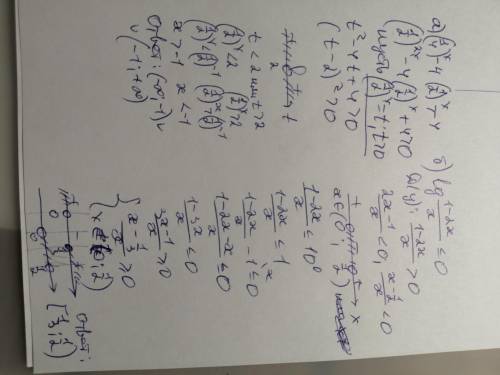 а) (1/4)^x - 4(1/2)^x > -4
(1/2)^2x - 4(1/2)^x + 4 > 0
пусть (1/2)^x = t, t > 0
t² - 4t + 4 > 0
(t - 2)² > 0
t < 2 или t > 2
(1/2)^x < 2 (1/2)^x > 2
(1/2)^x < (1/2)^-1 (1/2)^x > (1/2)^-1
x > -1 x < -1
Ответ: (-∞; -1) ∪
∪ (-1; +∞)
б) lg (1-2x)/x ≤ 0
ОДЗ: (1-2x)/x > 0
(2x-1)/x < 0, (x-1/2)/x < 0
x ∈ (0; 1/2)
(1-2x)/x ≤ 10⁰
(1-2x)/x ≤ 1
(1-2x)/x - 1 ≤ 0
(1-2x-x)/x ≤ 0
(1-3x)/x ≤ 0
(3x-1)/x ≥ 0
{ x ∈ (0; 1/2)
(x-1/3)/x ≥ 0
Ответ:
[1/3; 1/2)